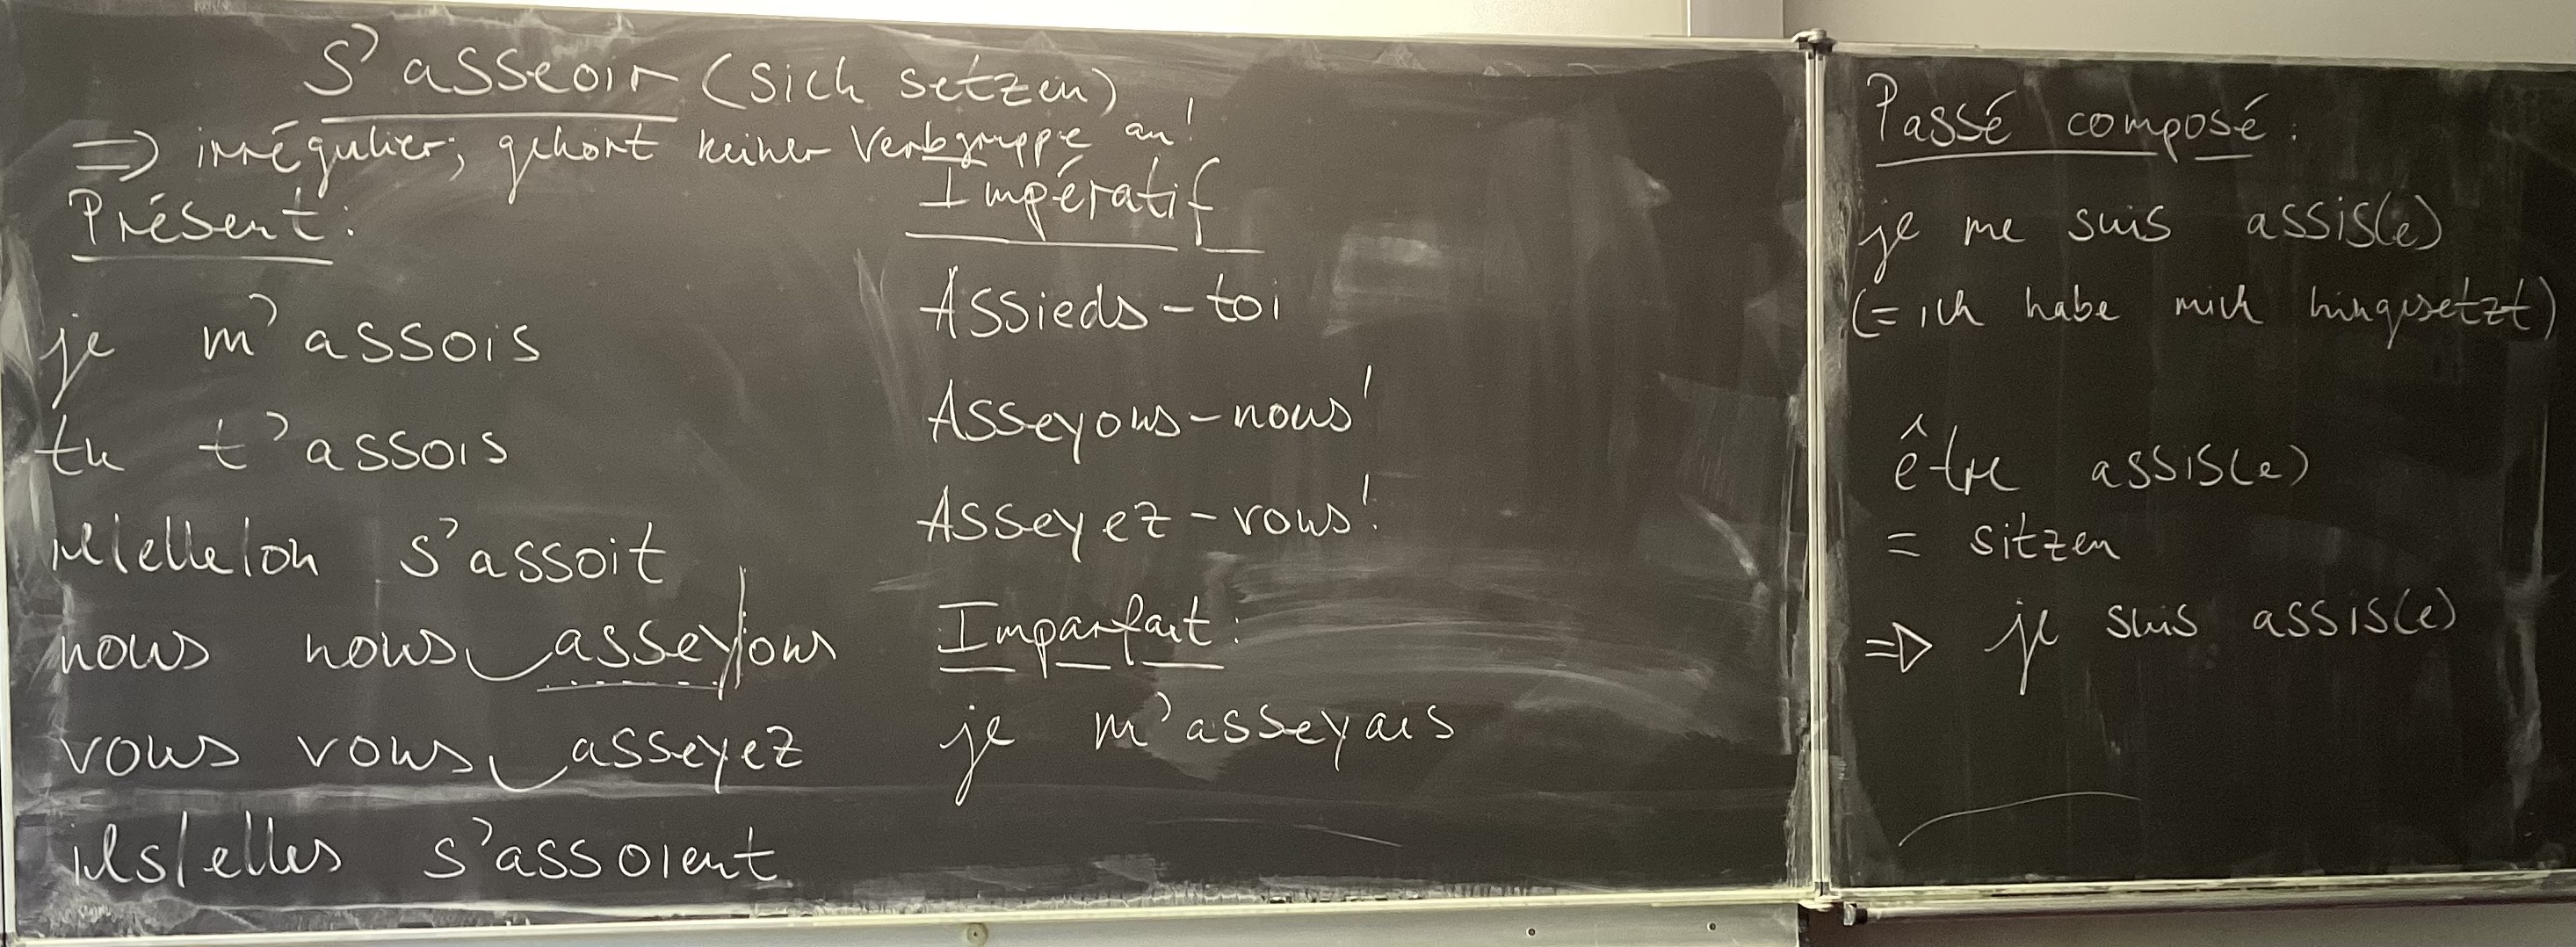 s'asseoir (sich setzen)
⇒ irrégulier; gehört keiner Verbgruppe an!
Présent:
je m'assois
tu t'assois
il/elle/on s'assoit
nous nous assey|ons
vous vous asseyez
ils/elles s'assoient
Impératif
Assieds-toi
Asseyons-nous!
Asseyez-vous!
Imparfait:
je m'asseyais
Passé composé:
je me suis assis(e)
(= ich habe mich hingesetzt)
être assis(e)
= sitzen
⇒ je suis assis(e)